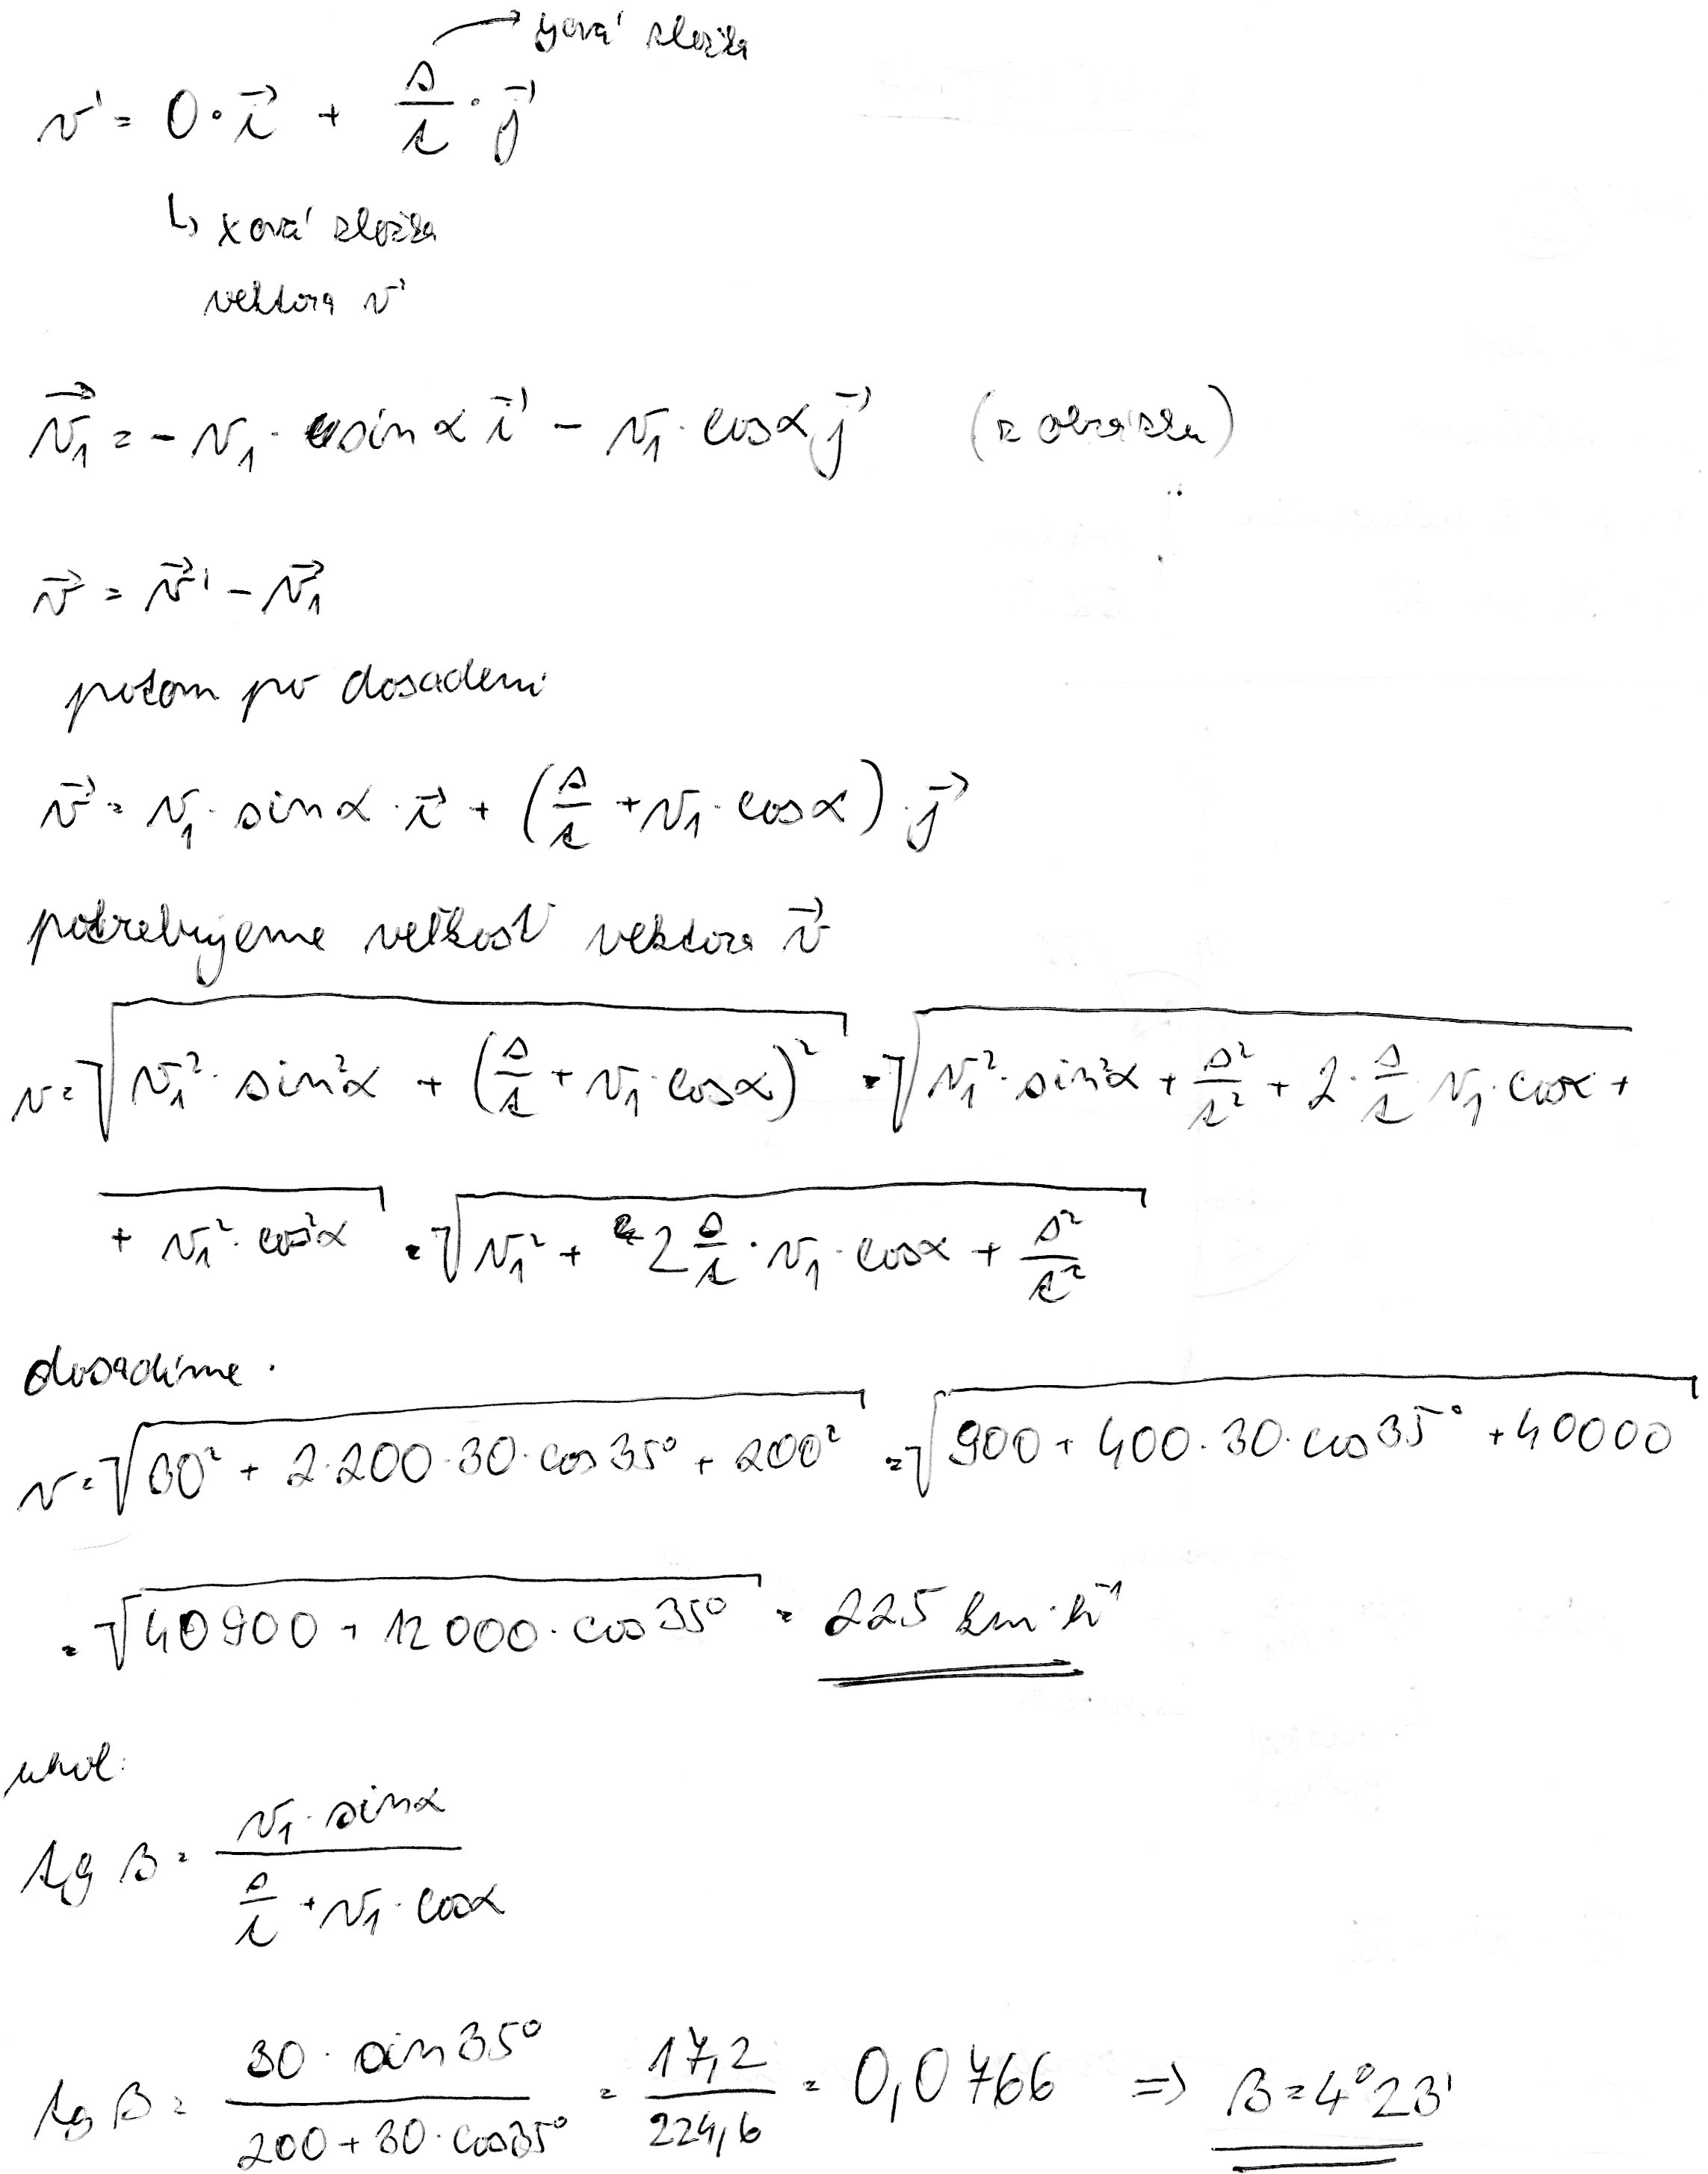 yová zložka
v' = 0·i⃗ + s/t · j⃗
↳ xová zložka
vektora v'
v⃗₁ = - v₁ · sin α i⃗ - v₁ · cos α j⃗ (z obrázku)
v⃗ = v⃗' - v⃗₁
potom po dosadení
v⃗ = v₁ · sin α · i⃗ + (s/t + v₁ · cos α) · j⃗
potrebujeme veľkosť vektora v⃗
v = √(v₁² · sin²α + (s/t + v₁ · cos α)²) = √(v₁² · sin²α + s²/t² + 2 · s/t v₁ · cos α +
+ v₁² · cos²α) = √(v₁² + 2 s/t · v₁ · cos α + s²/t²)
dosadíme.
v = √(30² + 2·200·30·cos 35° + 200²) = √(900 + 400·30·cos 35° + 40000)
= √(40900 + 12000·cos 35°) = 225 km·h⁻¹
uhol:
tg β = (v₁ · sin α)/(s/t + v₁ · cos α)
tg β = (30 · sin 35°)/(200 + 30 · cos 35°) = 17,2/224,6 = 0,0766 ⇒ β = 4°23'